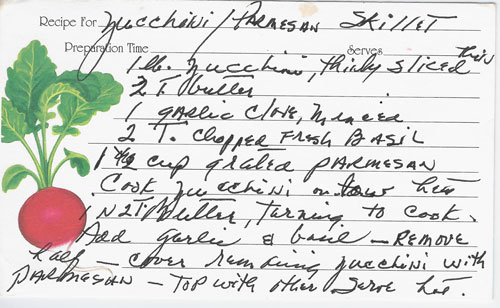 Recipe For Zucchini/Parmesan Skillet
Preparation Time Serves
1 lb. zucchini, thinly sliced thin
2 T butter
1 garlic clove, minced
2 T. chopped fresh basil
1 1/2 cup grated parmesan
Cook zucchini on low heat
in 2 T butter, turning to cook.
Add garlic & basil — Remove
half — cover remaining zucchini with
parmesan — top with other serve hot.